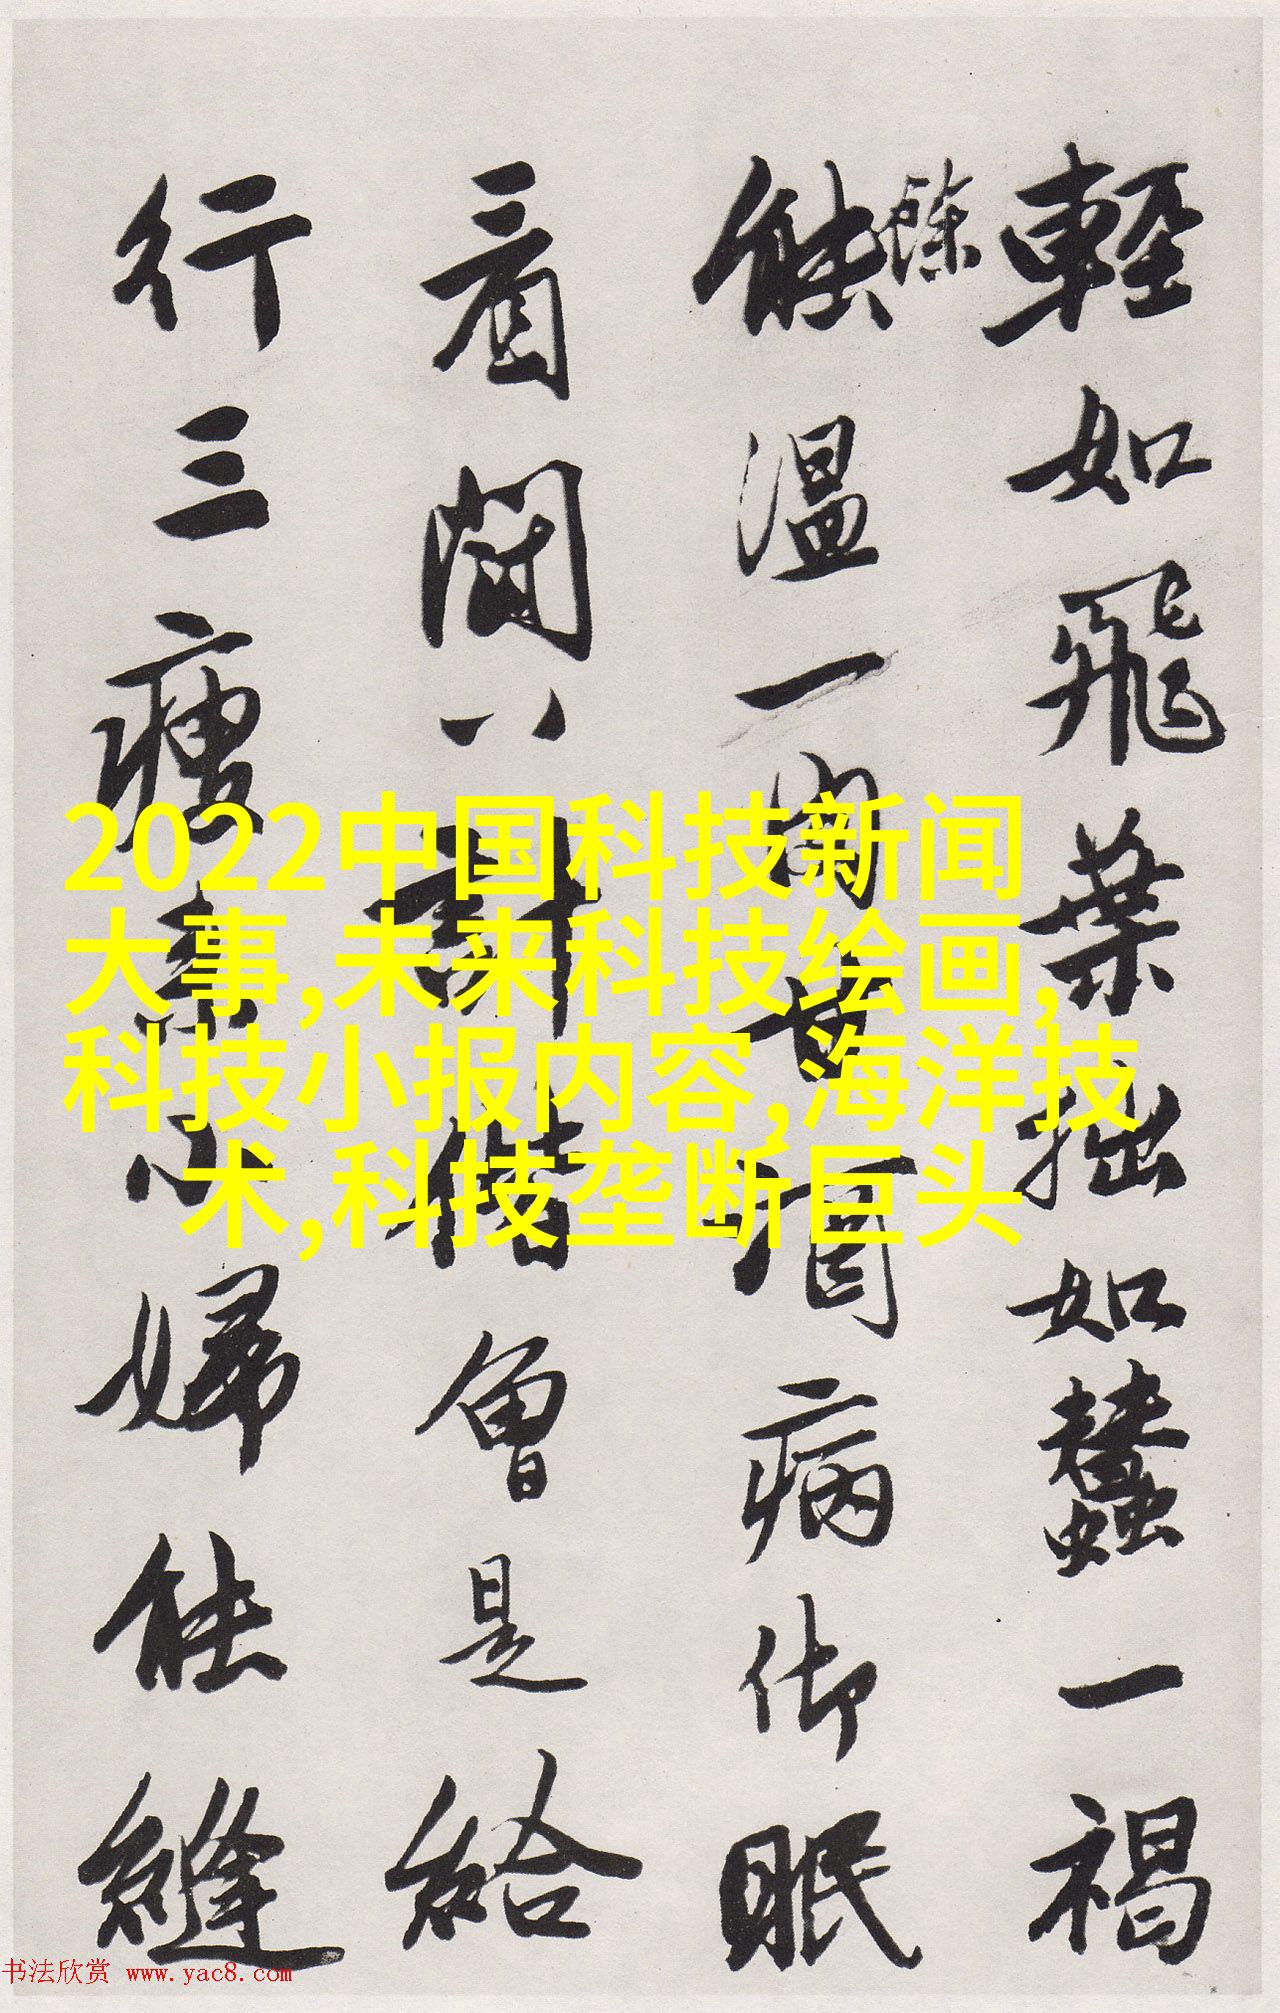 輕如飛葉拙如蠶一褐
能溫一病仰眠
看八計偕曾是給
行三瘦小婦能縫
2022中国科技新闻
大事,未来科技绘画,
科技小报内容,海洋技
术,科技垄断巨头
书法欣赏 www.yac8.com